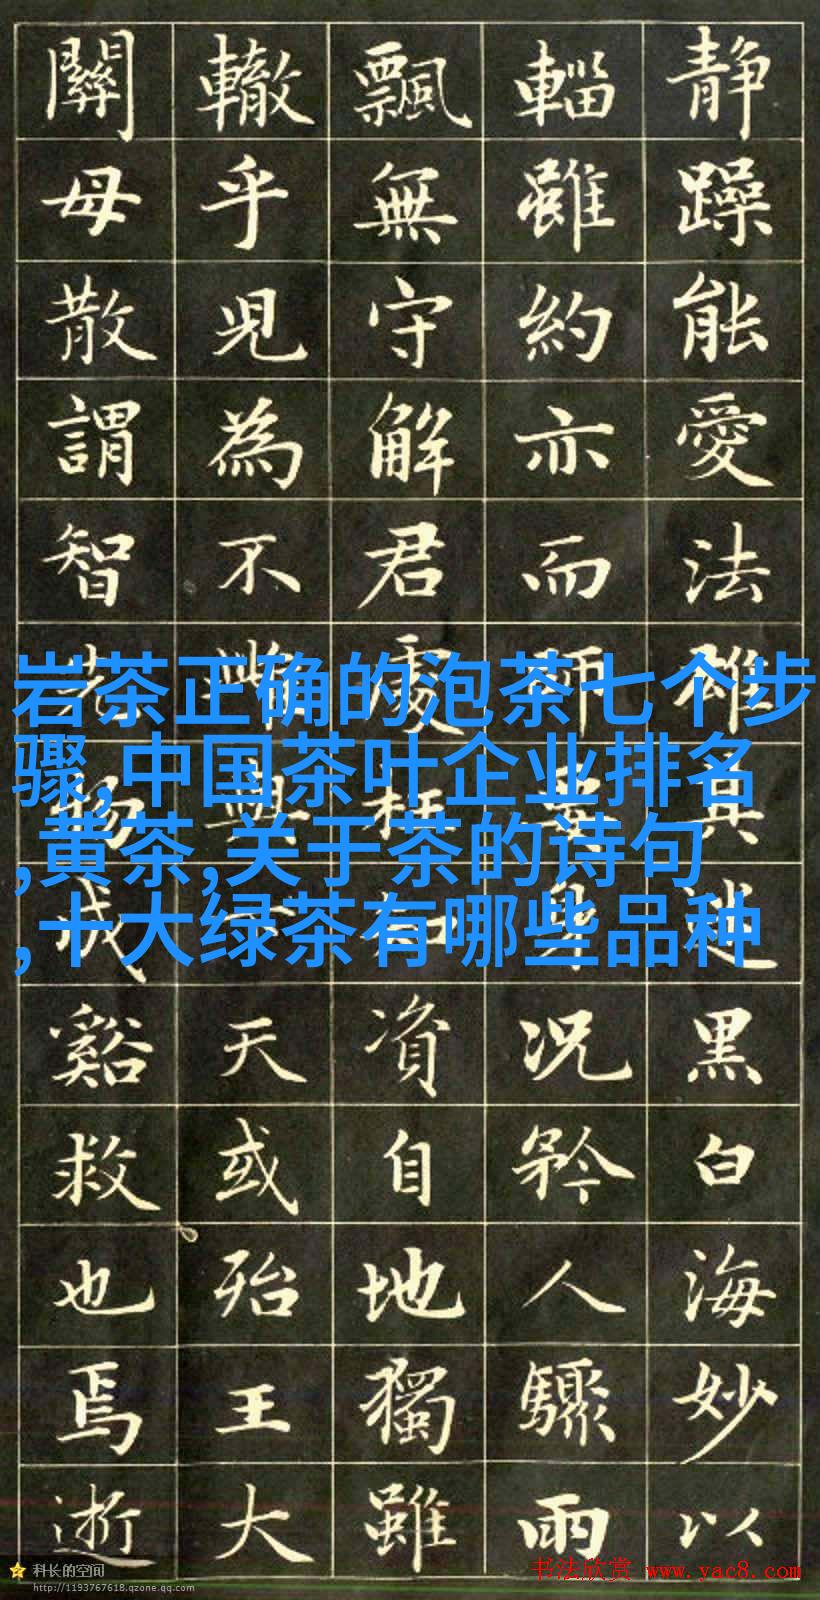 静躁能愛法雄兵黑白海妙以
輜雖約亦而師身况矜人驟雨
飄無守解君處知資自地獨雖
轍乎児為不與天或殆王大
關毋散謂智物成谿救也焉逝
岩茶正确的泡茶七个步
骤,中国茶叶企业排名
,黄茶,关于茶的诗句
,十大绿茶有哪些品种
科长的空间
http://1193767618.qzone.qq.com
书法欣赏 www.yac8.com